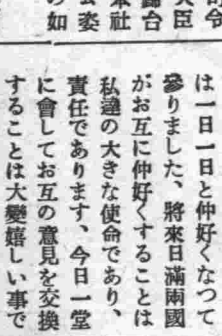 は一日一日と仲好くなつて
參りました、將來日滿兩國
がお互に仲好くすることは
私達の大きな使命であり、
責任であります、今日一堂
に會してお互の意見を交換
することは大變嬉しい事で